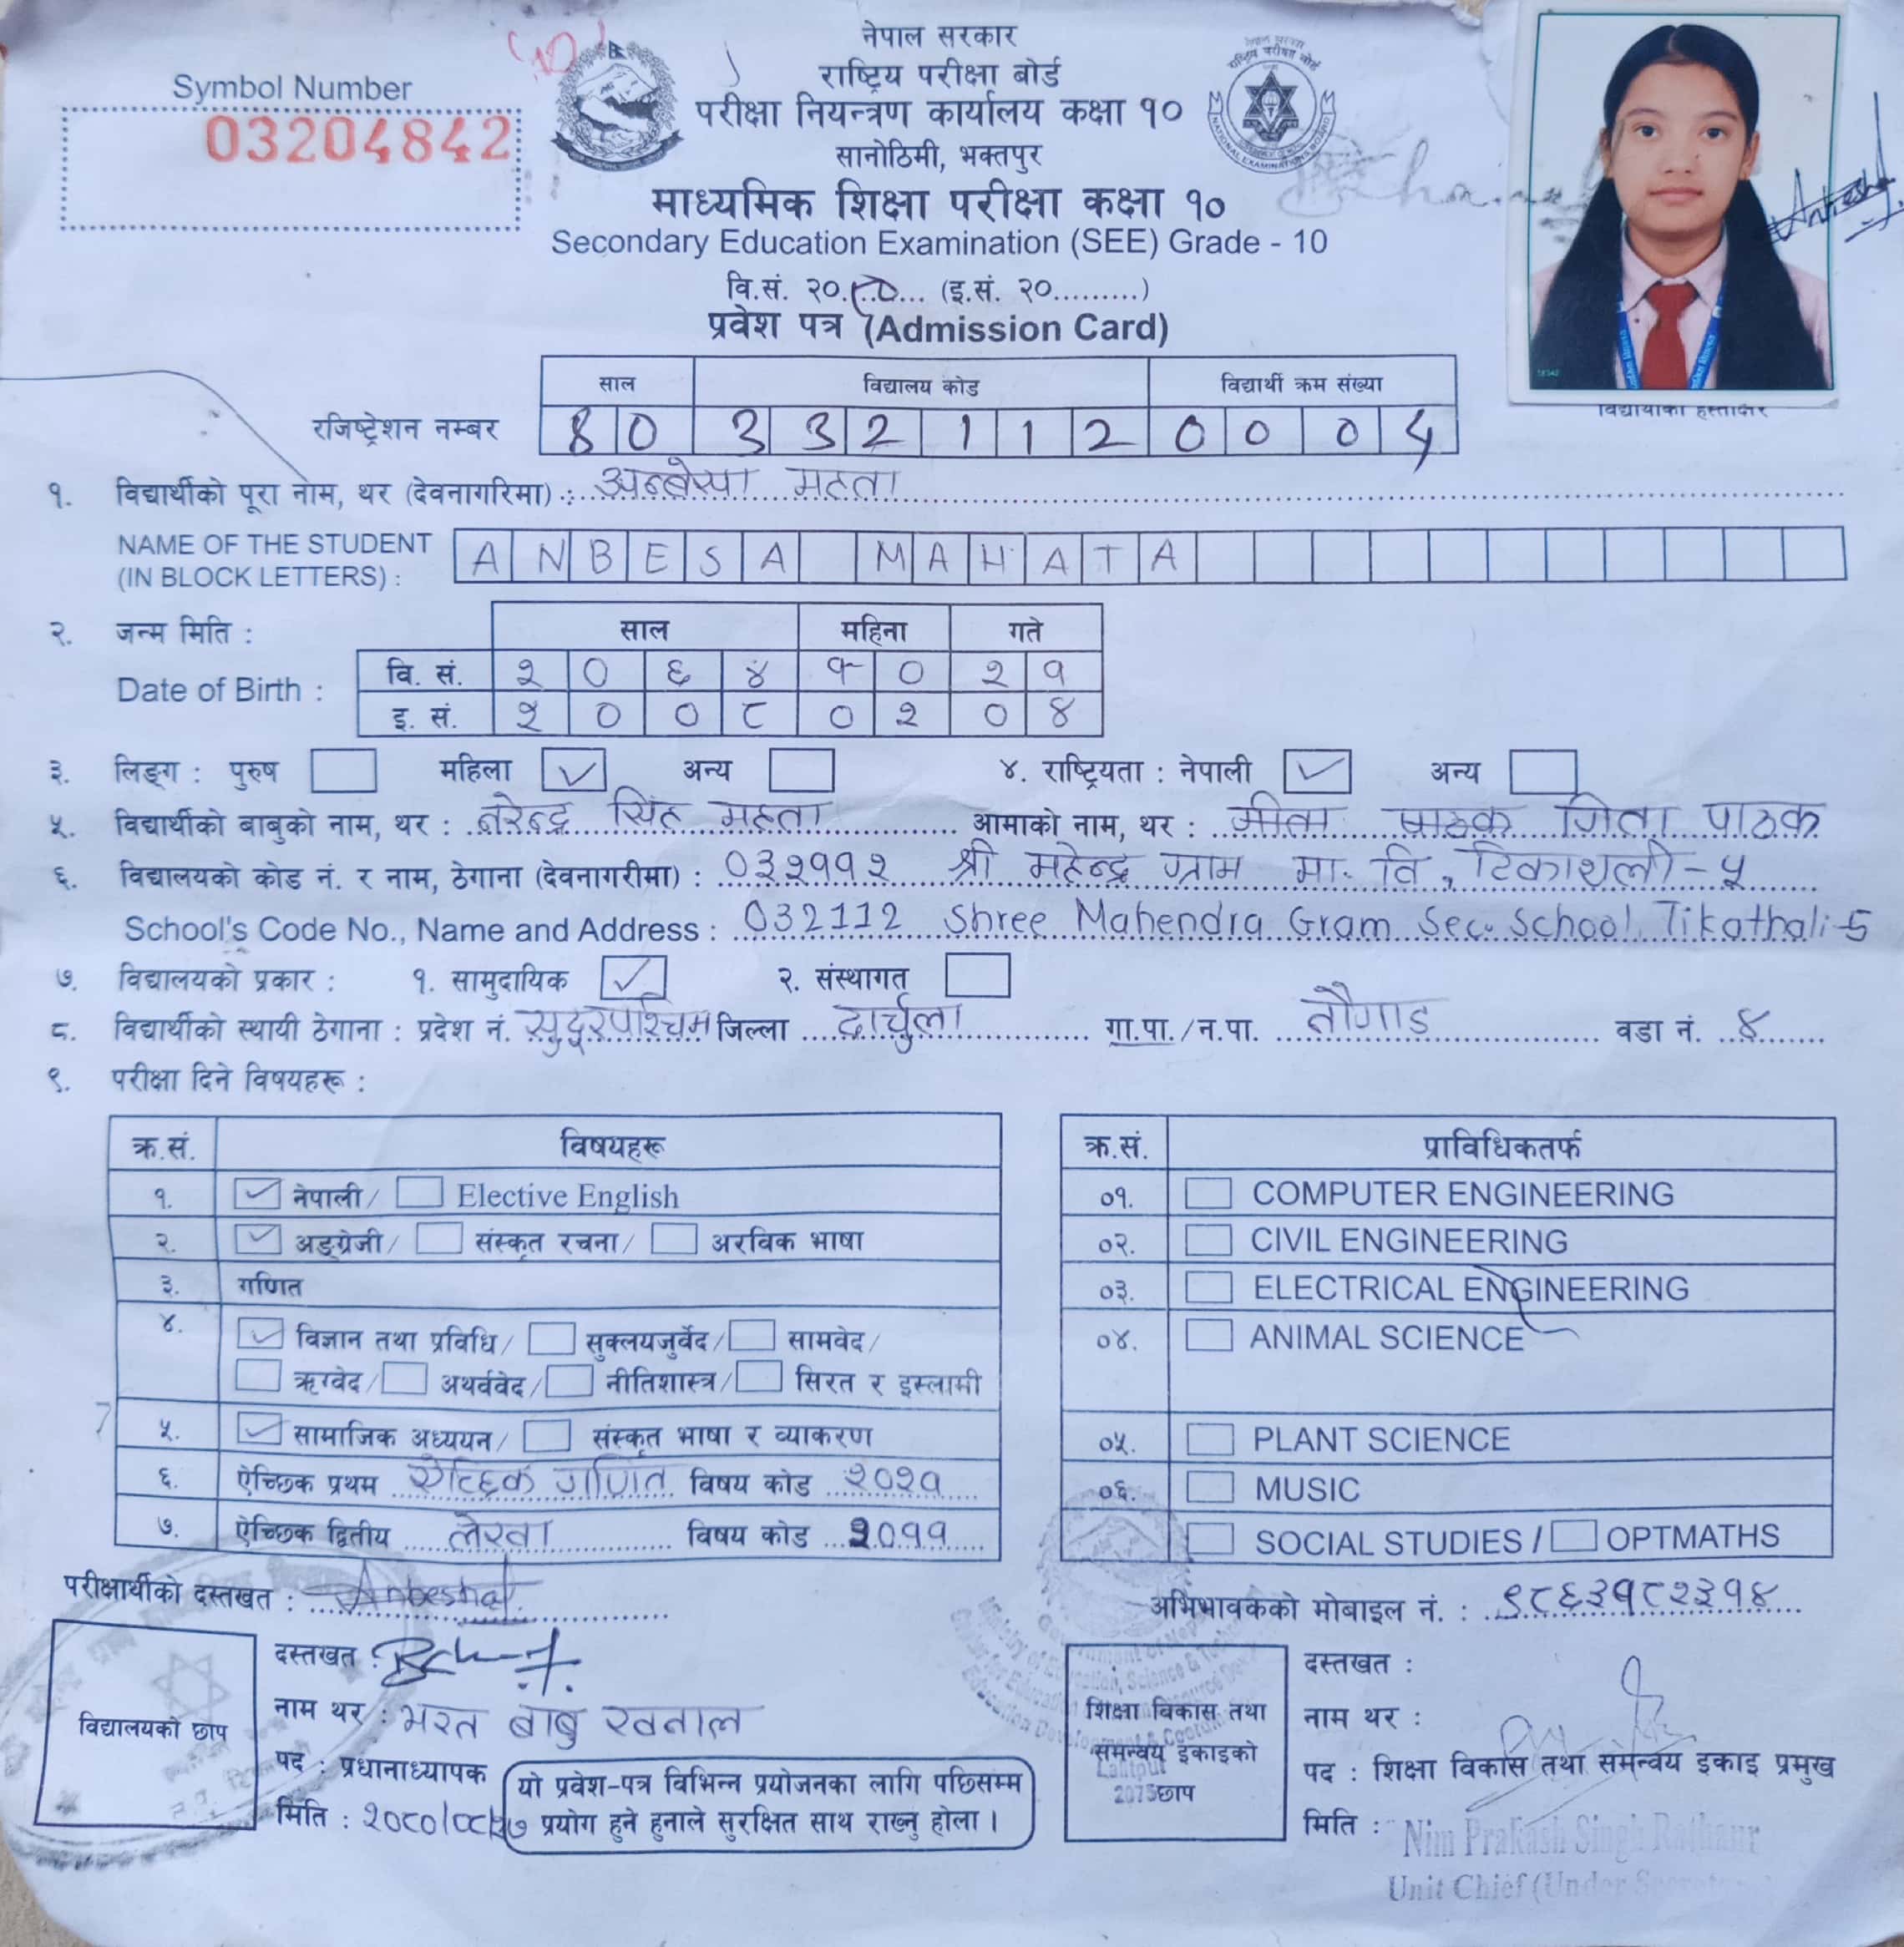 Symbol Number
03204842
नेपाल सरकार
राष्ट्रिय परीक्षा बोर्ड
परीक्षा नियन्त्रण कार्यालय कक्षा १०
सानोठिमी, भक्तपुर
माध्यमिक शिक्षा परीक्षा कक्षा १०
Secondary Education Examination (SEE) Grade - 10
वि.सं. २०८०... (इ.सं. २०.........)
प्रवेश पत्र (Admission Card)
विद्यार्थीको हस्ताक्षर
साल विद्यालय कोड विद्यार्थी क्रम संख्या
रजिष्ट्रेशन नम्बर 80 332112 0004
१. विद्यार्थीको पूरा नाम, थर (देवनागरिमा) : अन्बेसा महता
NAME OF THE STUDENT ANBESA MAHATA
(IN BLOCK LETTERS) :
२. जन्म मिति : साल महिना गते
Date of Birth : वि. सं. २०६४ १० २१
इ. सं. २००८ ०२ ०४
३. लिङ्ग : पुरुष महिला ✓ अन्य ४. राष्ट्रियता : नेपाली ✓ अन्य
५. विद्यार्थीको बाबुको नाम, थर : नरेन्द्र सिंह महता आमाको नाम, थर : गीता पाठक गिता पाठक
६. विद्यालयको कोड नं. र नाम, ठेगाना (देवनागरीमा) : ०३२११२ श्री महेन्द्र ग्राम मा. वि., टिकाथली-५
School's Code No., Name and Address : 032112 Shree Mahendra Gram Sec. School, Tikathali-5
७. विद्यालयको प्रकार : १. सामुदायिक ✓ २. संस्थागत
८. विद्यार्थीको स्थायी ठेगाना : प्रदेश नं. सुदूरपश्चिम जिल्ला दार्चुला गा.पा./न.पा. नौगाड वडा नं. ४
९. परीक्षा दिने विषयहरू :
क्र.सं. विषयहरू
१. ✓ नेपाली/ Elective English
२. ✓ अङ्ग्रेजी/ संस्कृत रचना/ अरविक भाषा
३. गणित
४. ✓ विज्ञान तथा प्रविधि/ सुक्लयजुर्वेद/ सामवेद/
ऋग्वेद/ अथर्ववेद/ नीतिशास्त्र/ सिरत र इस्लामी
५. ✓ सामाजिक अध्ययन/ संस्कृत भाषा र व्याकरण
६. ऐच्छिक प्रथम ऐच्छिक गणित विषय कोड २०२१
७. ऐच्छिक द्वितीय लेखा विषय कोड २०११
क्र.सं. प्राविधिकतर्फ
०१. COMPUTER ENGINEERING
०२. CIVIL ENGINEERING
०३. ELECTRICAL ENGINEERING
०४. ANIMAL SCIENCE
०५. PLANT SCIENCE
०६. MUSIC
SOCIAL STUDIES / OPTMATHS
परीक्षार्थीको दस्तखत : Anbesha
अभिभावकको मोबाइल नं. : ९८६३१८२३१४
विद्यालयको छाप
दस्तखत :
नाम थर : भरत बाबु खनाल
पद : प्रधानाध्यापक
मिति : २०८०/०८/२७
यो प्रवेश-पत्र विभिन्न प्रयोजनका लागि पछिसम्म
प्रयोग हुने हुनाले सुरक्षित साथ राख्नु होला ।
शिक्षा विकास तथा
समन्वय इकाइको
छाप
Lalitpur
2075
दस्तखत :
नाम थर :
पद : शिक्षा विकास तथा समन्वय इकाइ प्रमुख
मिति :
Nim Prakash Singh Rathaur
Unit Chief (Under